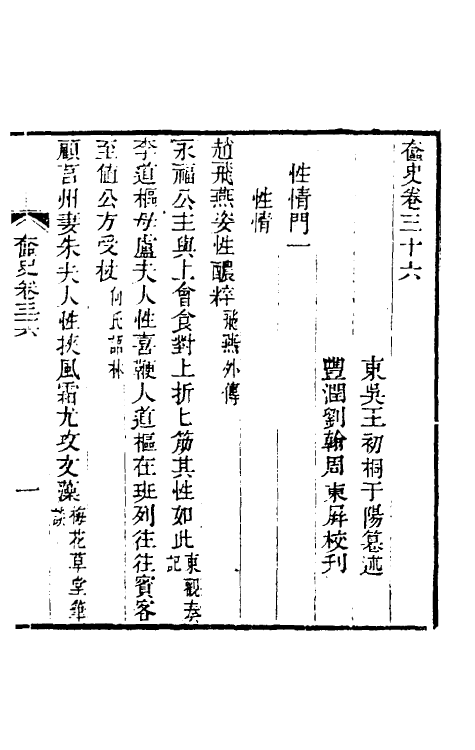 奩史卷三十六
東吳王初桐于陽篹述
豐潤劉翰周東屏校刊
性情門一
性情
趙飛燕姿性醲粹飛燕外傳
永福公主與上會食對上折匕筯其性如此東觀奏記
李道樞母盧夫人性喜鞭人道樞在班列往往賓客
至値公方受杖何氏語林
顧言州妻朱夫人性挾風霜尤攻文藻梅花草堂筆談
奩史卷三十六
一